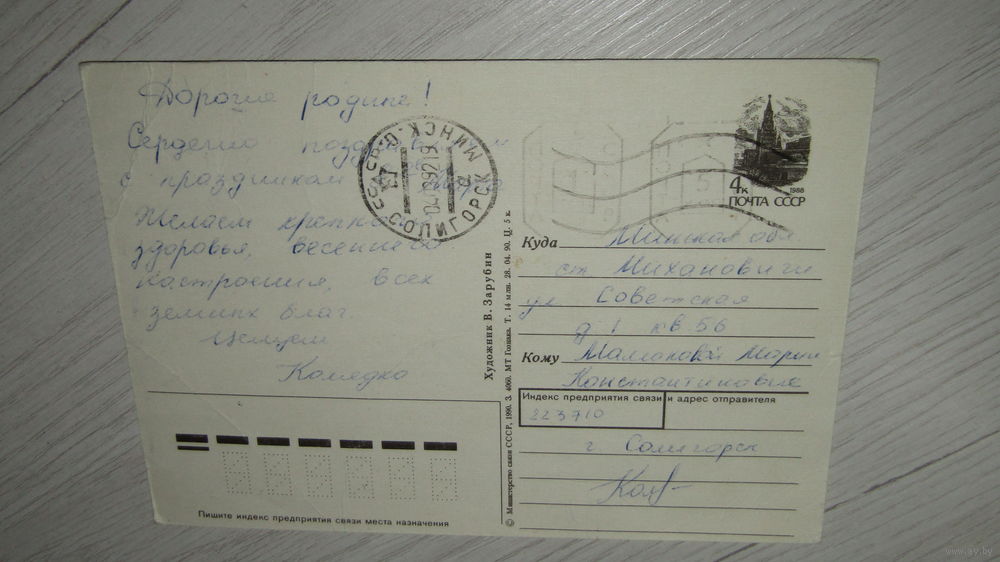 Дорогие родные!
Сердечно
с праздником
Желаем крепкого
здоровья, весеннего
настроения, всех
земных благ.
Целуем
Пишите индекс предприятия связи места назначения
СССР
МИНСК.О.
04 92 19
СОЛИГОРСК
Художник В. Зарубин
© Министерство связи СССР, 1990. З. 4060. МТ Гознака. Т. 14 млн. 28. 04. 90. Ц. 5 к.
4к 1988
ПОЧТА СССР
Куда Минская обл
ст. Михановичи
ул Советская
д 1 кв. 56
Кому Марии
Константиновне
Индекс предприятия связи и адрес отправителя
223710
г Солигорск
www.ay.by